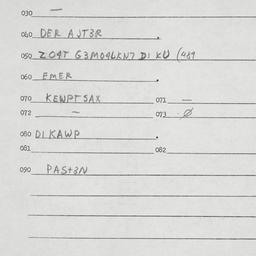 030 —
060 DER AJT3R.
050 ZO4T G3MO4LKN7 DI KU (449
060 EMER.
070 KEWPTSAX 071 —
072 ~ 073 Ø
080 DIKAWP.
081 082
090 PAST3N